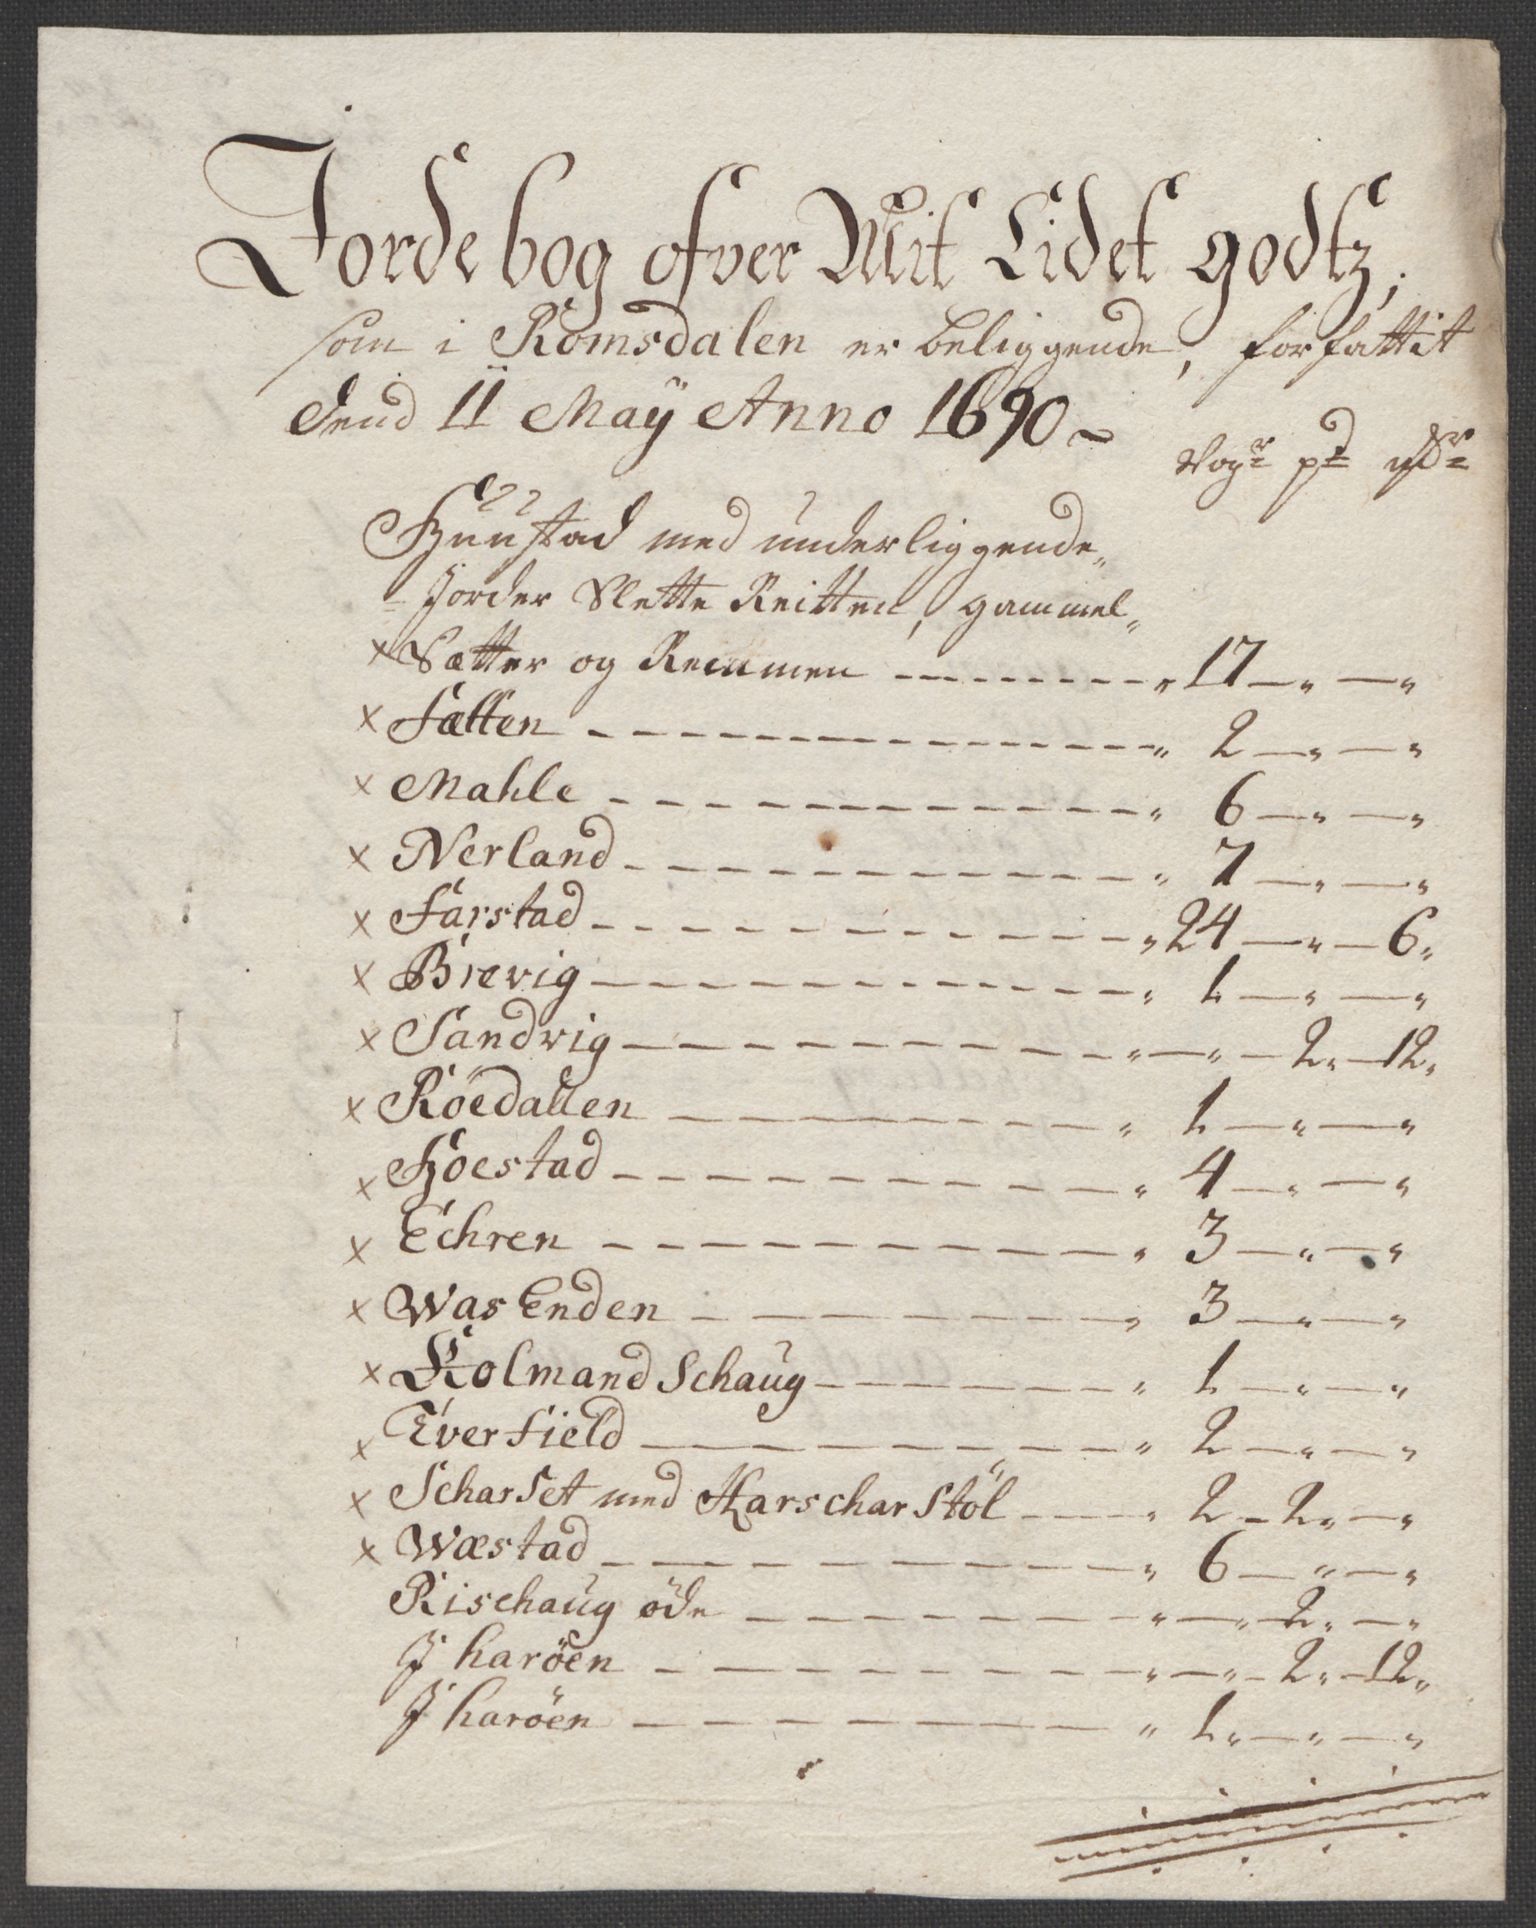 Jordebog ofver Mit Lidet godtz,
som i Romsdalen er beliggende, forfattit
dend 11 Maÿ Anno 1690 ~
Vogr pd mkr
Huustad med underliggende„
Jorder Slette Reitten, gammel„
x Sætter og Remmen - - - - - - - - „ 17 — „ — „
x Fætten - - - - - - - - „ 2 — „ — „
x Mahle - - - - - - - - „ 6 — „ — „
x Nerland - - - - - - - - „ 7 — „ — „
x Farstad - - - - - - - - „ 24 — „ — 6„
x Brevig - - - - - - - - „ 1 — „ — „
x Sandvig - - - - - - - - „ — „ - 2„ — 12„
x Röedallen - - - - - - - - „ 1 — „ — „
x Hoestad - - - - - - - - „ 4 — „ — „
x Echren - - - - - - - - „ 3 — „ — „
x WasEnden - - - - - - - - „ 3 — „ — „
x Kolmandschaug - - - - - - „ 1 — „ — „
x Everfield - - - - - - - - „ 2 — „ — „
x Scharset med Harscharstöl - - - „ 2 - 2„ — „
x Wæstad - - - - - - - - „ 6 — „ — „
Rischaug öde - - - - - - - - „ — „ - 2„ — „
J haröen - - - - - - - - „ — „ - 2„ — 12„
J haröen - - - - - - - - „ 1„ — „ — „